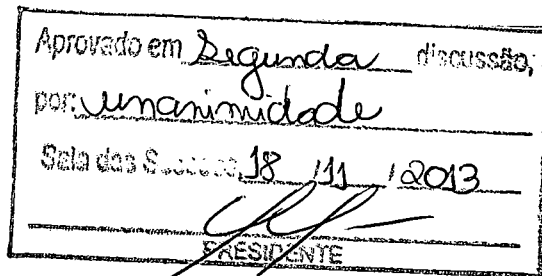 Aprovado em Segunda discussão,
por: unanimidade
Sala das Sessões, 18 / 11 / 2013
PRESIDENTE